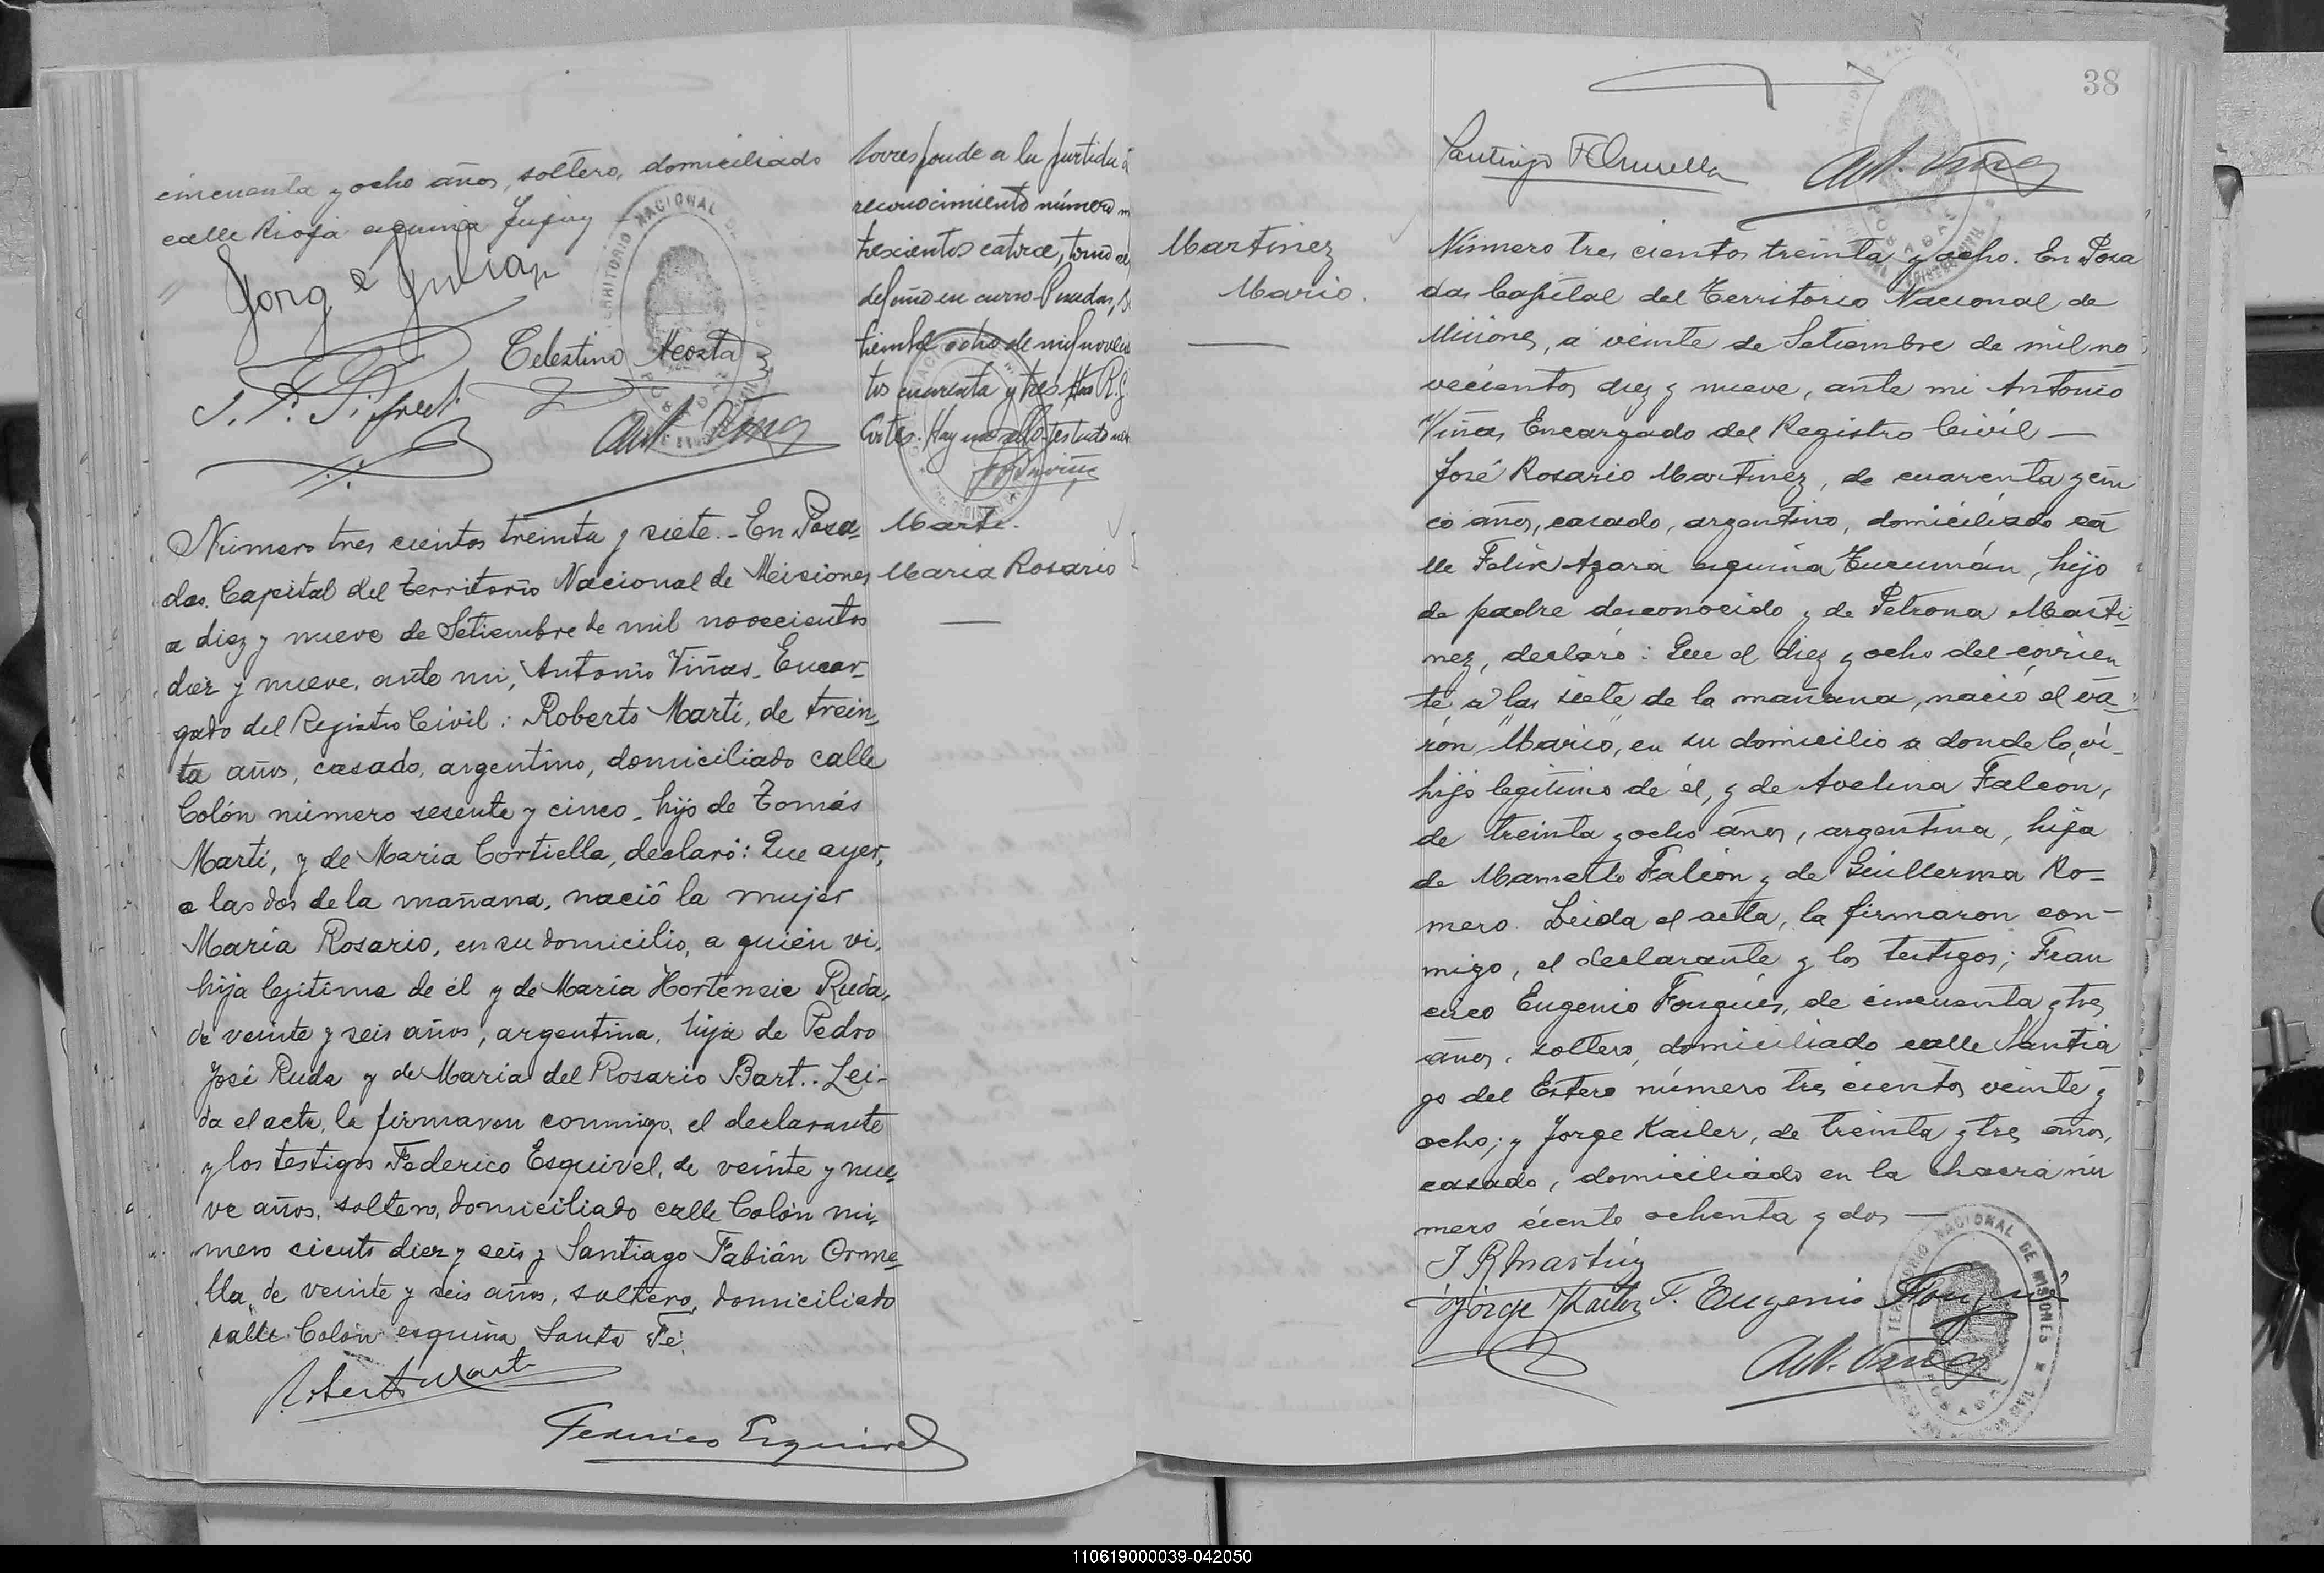 cincuenta y ocho años, soltero, domiciliado
calle Rioja esquina Jujuy
Jorge Julian
Celestino Acosta
Ant. Viñas
Corresponde a la partida
reconocimiento número
trescientos catorce, tomo
del año en curso Posadas,
tiembre ocho de mil novecien
tos cuarenta y tres
Cortes. Hay un sello
Numero tres cientos treinta y siete.- En Posa-
das. Capital del Territorio Nacional de Misiones
a diez y nueve de Setiembre de mil novecientos
diez y nueve, ante mi, Antonio Viñas, Encar-
gado del Registro Civil: Roberto Martí, de trein-
ta años, casado, argentino, domiciliado calle
Colón número sesenta y cinco, hijo de Tomás
Martí, y de Maria Cortiella, declaró: Que ayer,
a las dos de la mañana, nació la mujer
María Rosario, en su domicilio, a quién vi,
hija legitima de él y de María Hortensia Ruda,
de veinte y seis años, argentina, hija de Pedro
José Ruda y de Maria del Rosario Bart.. Lei-
da el acta, la firmaron conmigo, el declarante
y los testigos Federico Esquivel, de veinte y nue-
ve años, soltero, domiciliado calle Colón nú-
mero ciento diez y seis y Santiago Fabián Orme-
lla, de veinte y seis años, soltero, domiciliado
calle Colón esquina Santa Fé.
Roberto Marti
Federico Esquivel
Marti.
Maria Rosario
38
Santiago F Ormella
Ant. Viñas
Martinez
Mario.
Número tres cientos treinta y ocho. En Posa
das Capital del Territorio Nacional de
Misiones, a veinte de Setiembre de mil no
vecientos diez y nueve, ante mi Antonio
Viñas Encargado del Registro Civil —
José Rosario Martinez, de cuarenta y cin
co años, casado, argentino, domiciliado ca
lle Felix Azara esquina Tucumán, hijo
de padre desconocido y de Petrona Marti-
nez, declaró: Que el diez y ocho del corrien
te a las siete de la mañana, nació el va-
rón "Mario", en su domicilio a donde lo vi-
hijo legitimo de él, y de Avelina Falcon,
de treinta y ocho años, argentina, hija
de Mamerto Falcón y de Guillerma Ro-
mero. Leida el acta, la firmaron con-
migo, el declarante y los testigos; Fran
cisco Eugenio Fouguès, de cincuenta y tres
años, soltero, domiciliado calle Santia
go del Estero número tres cientos veinte y
ocho; y Jorge Kailer, de treinta y tres años,
casado, domiciliado en la chacra nú
mero ciento ochenta y dos —
J R Martinez
Jorge Kailer F. Eugenio
Ant. Viñas
TERRITORIO NACIONAL DE MISIONES
POSADAS
110619000039-042050